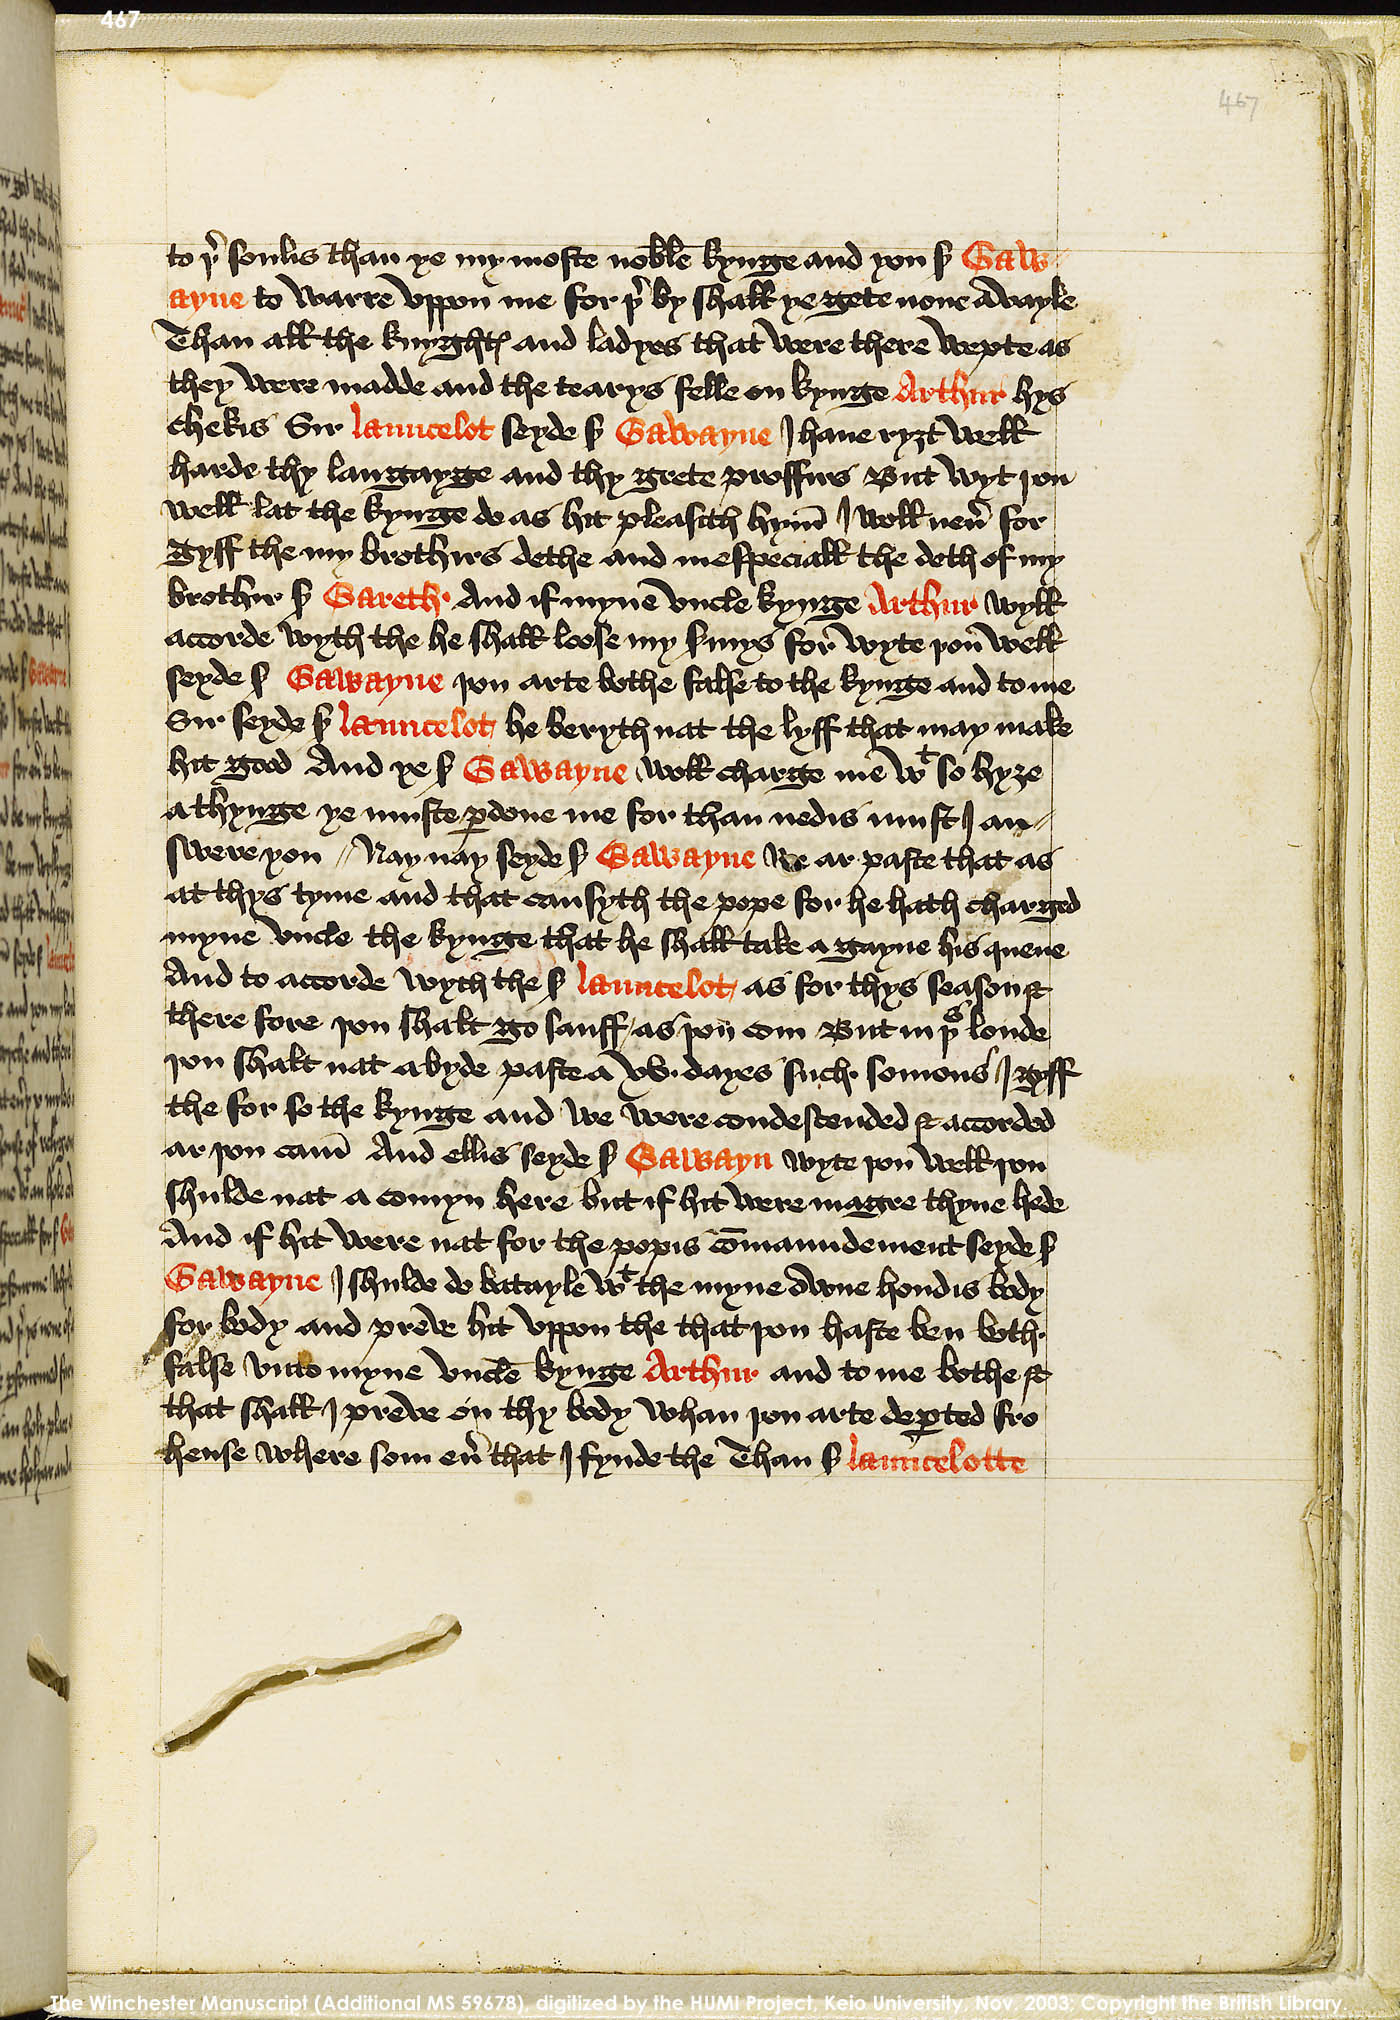 467
467
to þr soulis than ye my moste noble kynge and you sr Gaw
ayne to warre vppon me for þr by shall ye gete none avayle
Than all the knyghtes and ladyes that were there wepte as
they were madde and the tearys felle on kynge Arthur hys
chekis Sir launcelot seyde sr Gawayne I haue ryȝt well
harde thy langayge and thy grete proffurs But wyt þou
well lat the kynge do as hit pleasith hym I woll neuer for
gyff the my brothirs dethe and inespeciall the deth of my
brothir sr Gareth And if myne vncle kynge Arthur wyll
accorde wyth the he shall loose my seruys for wyte þou well
seyde sr Gawayne þou arte bothe false to the kynge and to me
Sir seyde sr launcelot he beryth nat the lyff that may make
hit good And ye sr Gawayne woll charge me wt so hyȝe
a thynge ye muste pardone me for than nedis must I an
swere you // Nay nay seyde sr Gawayne we ar paste that as
at thys tyme and that causyth the pope for he hath charged
myne vncle the kynge that he shall take a gayne his quene
And to accorde wyth the sr launcelot as for thys season &
there fore þou shalt go sauff as þou com But in þis londe
þou shalt nat abyde paste a xv. dayes such somons I gyff
the for so the kynge and we were condescended & accorded
ar þou cam And ellis seyde sr Gawayn wyte þou well þou
shulde nat a comyn here but if hit were magre thyne hede
And if hit were nat for the popis cōmaundement seyde sr
Gawayne I shulde do batayle wt the myne owne hondis body
for body and preve hit vppon the that þou haste ben both
false vnto myne vncle kynge Arthur and to me bothe &
that shall I preve on thy body whan þou arte departed fro
hense where som euer that I fynde the Than sr launcelotte
The Winchester Manuscript (Additional MS 59678), digitized by the HUMI Project, Keio University, Nov. 2003; Copyright the British Library.